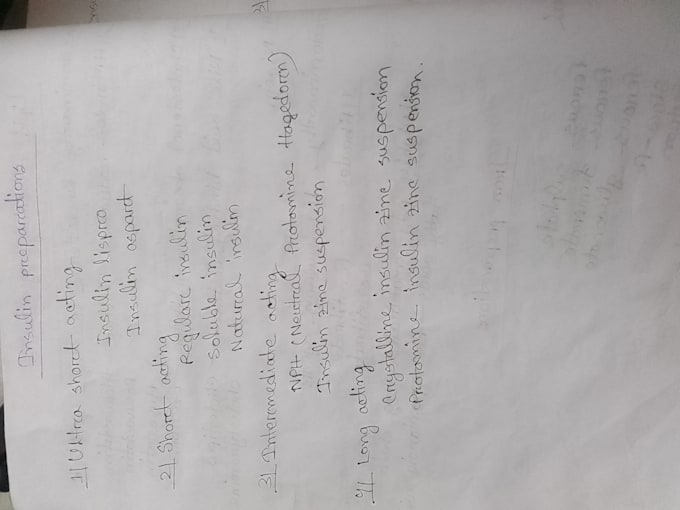 Insulin preparations
1) Ultra short acting
Insulin lispro
Insulin aspart
2) Short acting
Regular insulin
Soluble insulin
Natural insulin
3) Intermediate acting
NPH (Neutral Protamine Hagedorn)
Insulin zinc suspension
4) Long acting
Crystalline insulin zinc suspension
Protamine insulin zinc suspension.
3)